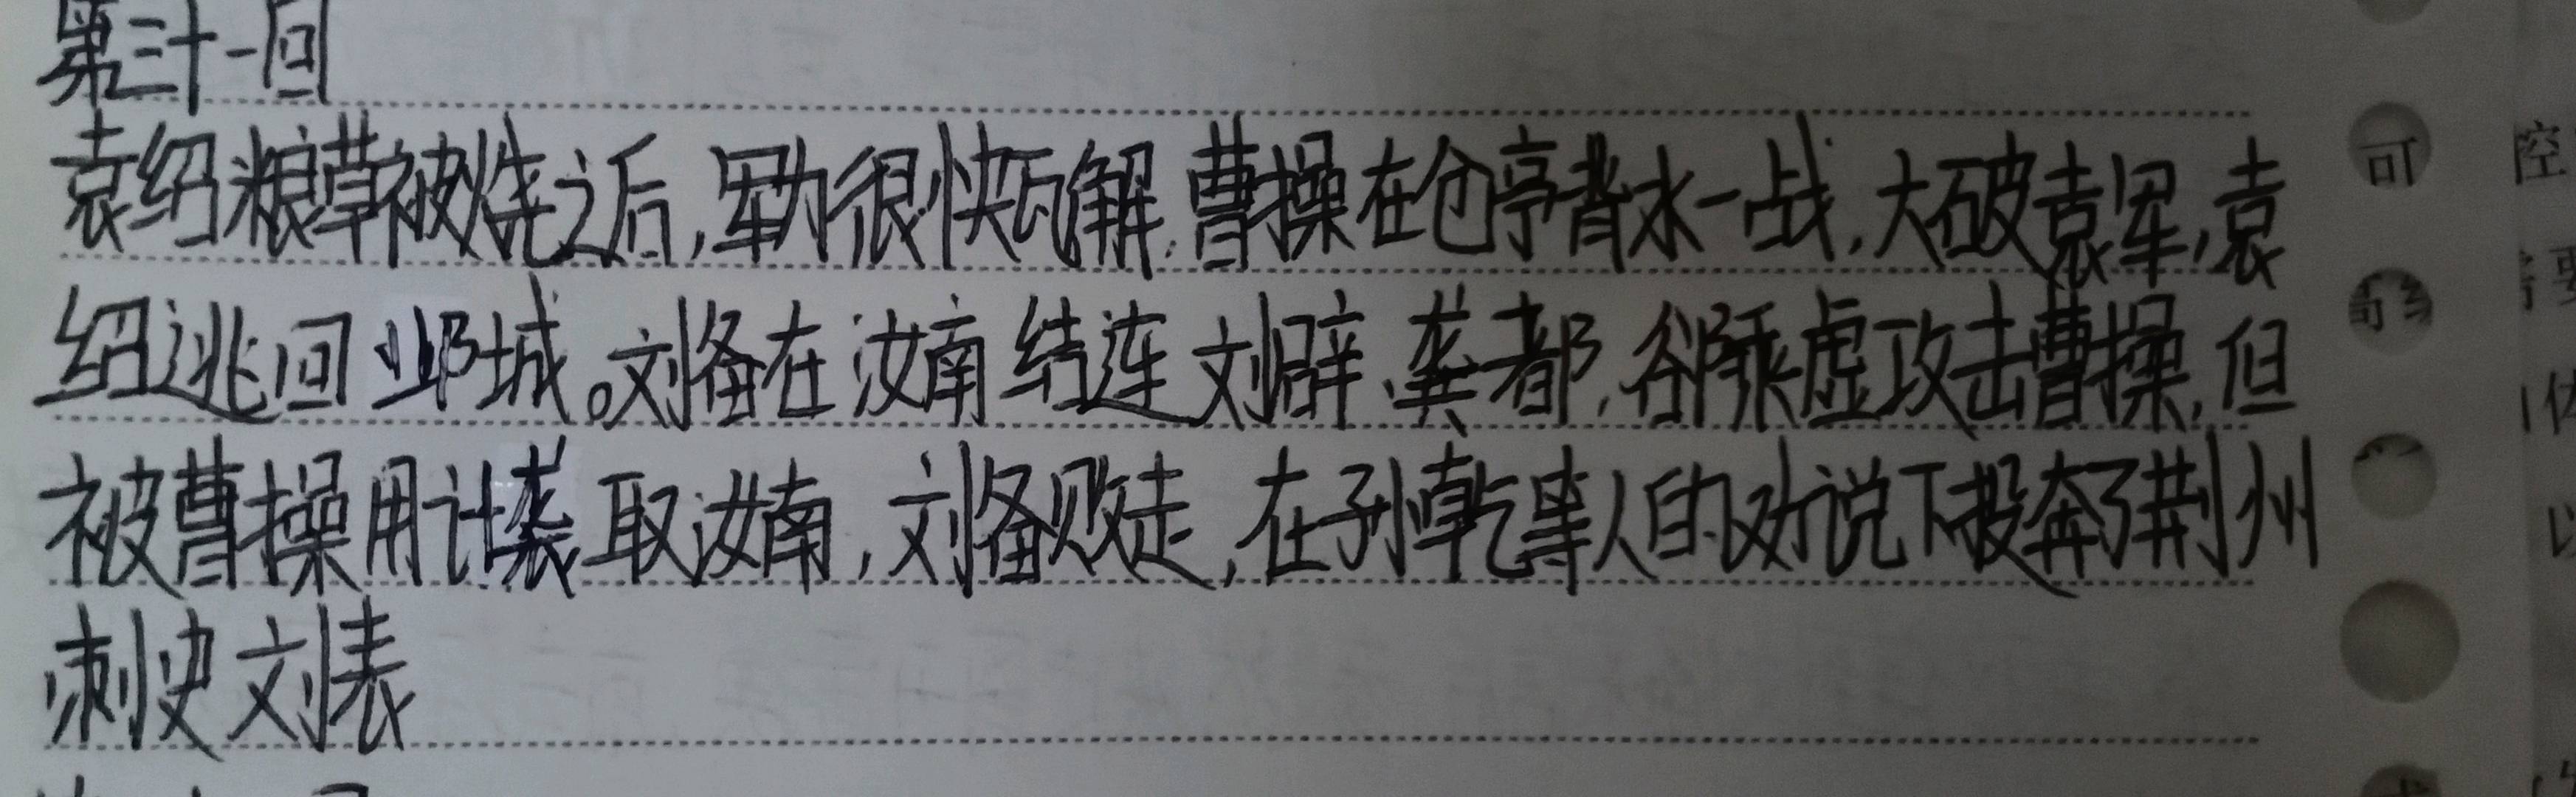 第三十一回
袁绍粮草被烧之后,军力很快瓦解,曹操在仓亭背水一战,大破袁军,袁
绍逃回邺城。刘备在汝南结连刘辟、龚都,欲乘虚攻击曹操,但
被曹操用计袭取汝南,刘备败走,在孙乾等人的劝说下投奔了荆州
刺史刘表
可
控